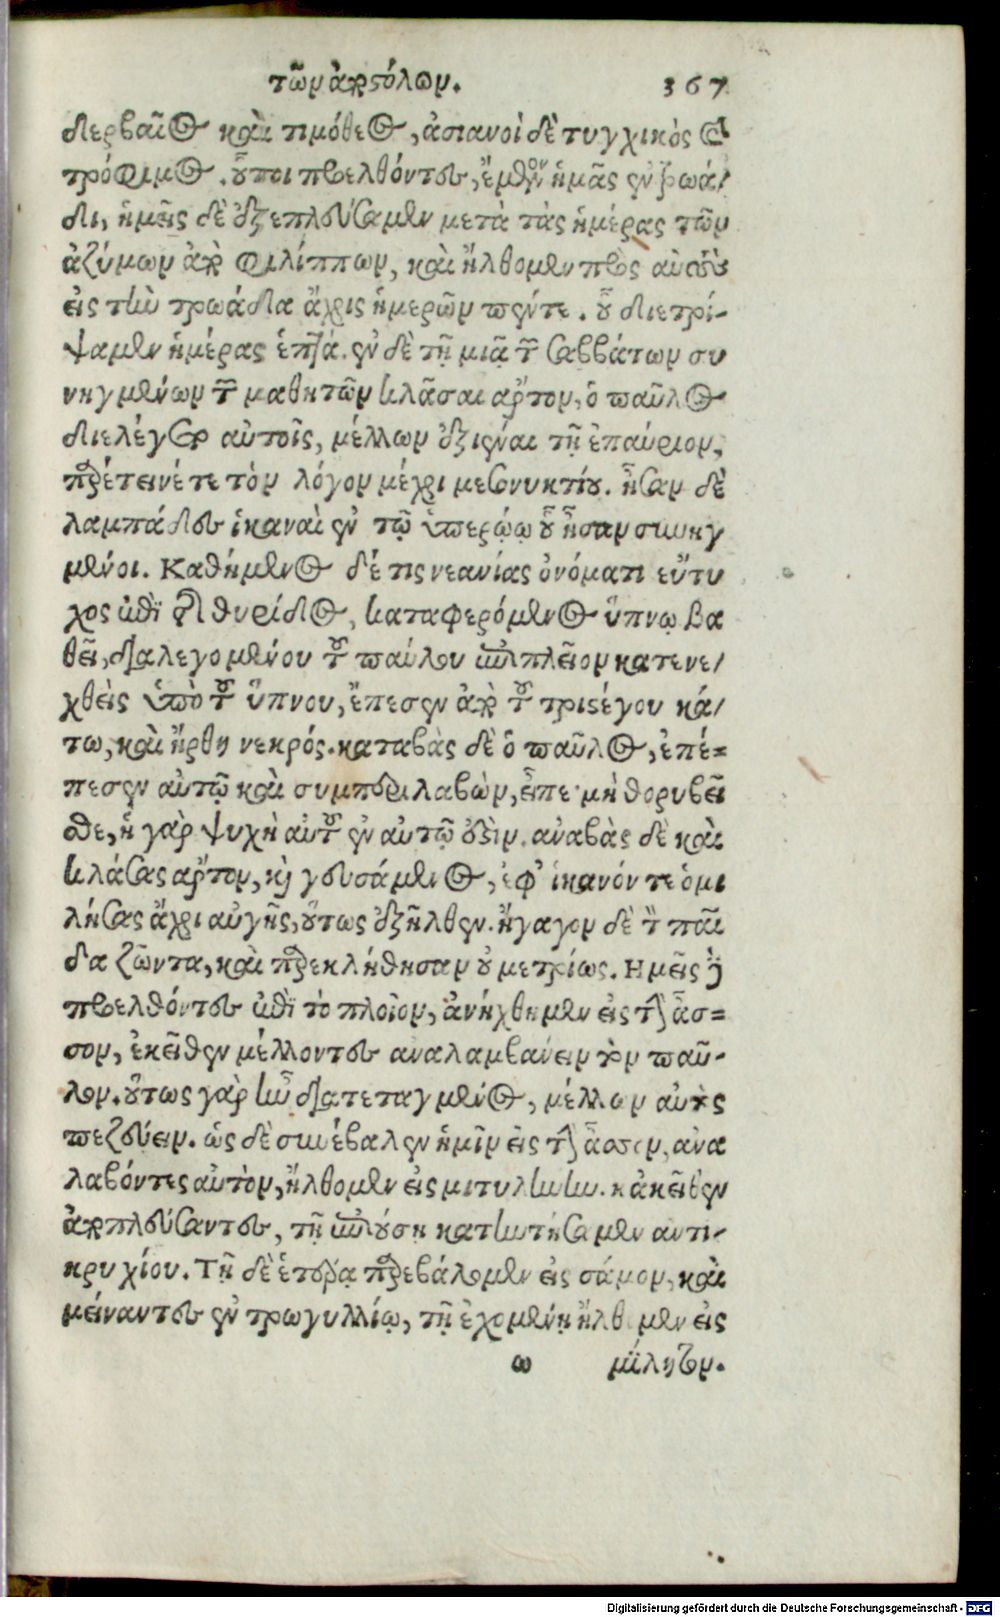 τῶν ἀποστόλων. 367
δερβαῖος καὶ τιμόθεος, ἀσιανοὶ δὲ τυχικὸς καὶ
τρόφιμος. οὗτοι προελθόντες, ἔμενον ἡμᾶς ἐν τρωά/
δι, ἡμεῖς δὲ ἐξεπλεύσαμεν μετὰ τὰς ἡμέρας τῶν
ἀζύμων ἀπὸ φιλίππων, καὶ ἤλθομεν πρὸς αὐτοὺς
εἰς τὴν τρωάδα ἄχρις ἡμερῶν πέντε. οὗ διετρί-
ψαμεν ἡμέρας ἑπτά. ἐν δὲ τῇ μιᾷ τῶν σαββάτων συ
νηγμένων τῶν μαθητῶν κλᾶσαι ἄρτον, ὁ παῦλος
διελέγετο αὐτοῖς, μέλλων ἐξιέναι τῇ ἐπαύριον,
παρέτεινέ τε τὸν λόγον μέχρι μεσονυκτίου. ἦσαν δὲ
λαμπάδες ἱκαναὶ ἐν τῷ ὑπερῴῳ οὗ ἦσαν συνηγ
μένοι. Καθήμενος δέ τις νεανίας ὀνόματι εὔτυ
χος ἐπὶ τῆς θυρίδος, καταφερόμενος ὕπνῳ βα
θεῖ, διαλεγομένου τοῦ παύλου ἐπὶ πλεῖον κατενε/
χθεὶς ὑπὸ τοῦ ὕπνου, ἔπεσεν ἀπὸ τοῦ τριστέγου κά/
τω, καὶ ἤρθη νεκρός. καταβὰς δὲ ὁ παῦλος, ἐπέ=
πεσεν αὐτῷ καὶ συμπεριλαβὼν, εἶπε· μὴ θορυβεῖ
σθε, ἡ γὰρ ψυχὴ αὐτοῦ ἐν αὐτῷ ἐστὶν. ἀναβὰς δὲ καὶ
κλάσας ἄρτον, καὶ γευσάμενος, ἐφ᾽ ἱκανόν τε ὁμι
λήσας ἄχρι αὐγῆς, οὕτως ἐξῆλθεν. ἤγαγον δὲ τὸν παῖ
δα ζῶντα, καὶ παρεκλήθησαν οὐ μετρίως. Ημεῖς δὲ
προελθόντες ἐπὶ τὸ πλοῖον, ἀνήχθημεν εἰς τὴν ἆσ=
σον, ἐκεῖθεν μέλλοντες ἀναλαμβάνειν τὸν παῦ-
λον. οὕτως γὰρ ἦν διατεταγμένος, μέλλων αὐτὸς
πεζεύειν. ὡς δὲ συνέβαλεν ἡμῖν εἰς τὴν ἆσσον, ἀνα
λαβόντες αὐτὸν, ἤλθομεν εἰς μιτυλήνην. κἀκεῖθεν
ἀποπλεύσαντες, τῇ ἐπιούσῃ κατηντήσαμεν ἀντι-
κρυ χίου. Τῇ δὲ ἑτέρᾳ παρεβάλομεν εἰς σάμον, καὶ
μείναντες ἐν τρωγυλλίῳ, τῇ ἐχομένῃ ἤλθομεν εἰς
ω μίλητον.
Digitalisierung gefördert durch die Deutsche Forschungsgemeinschaft - DFG